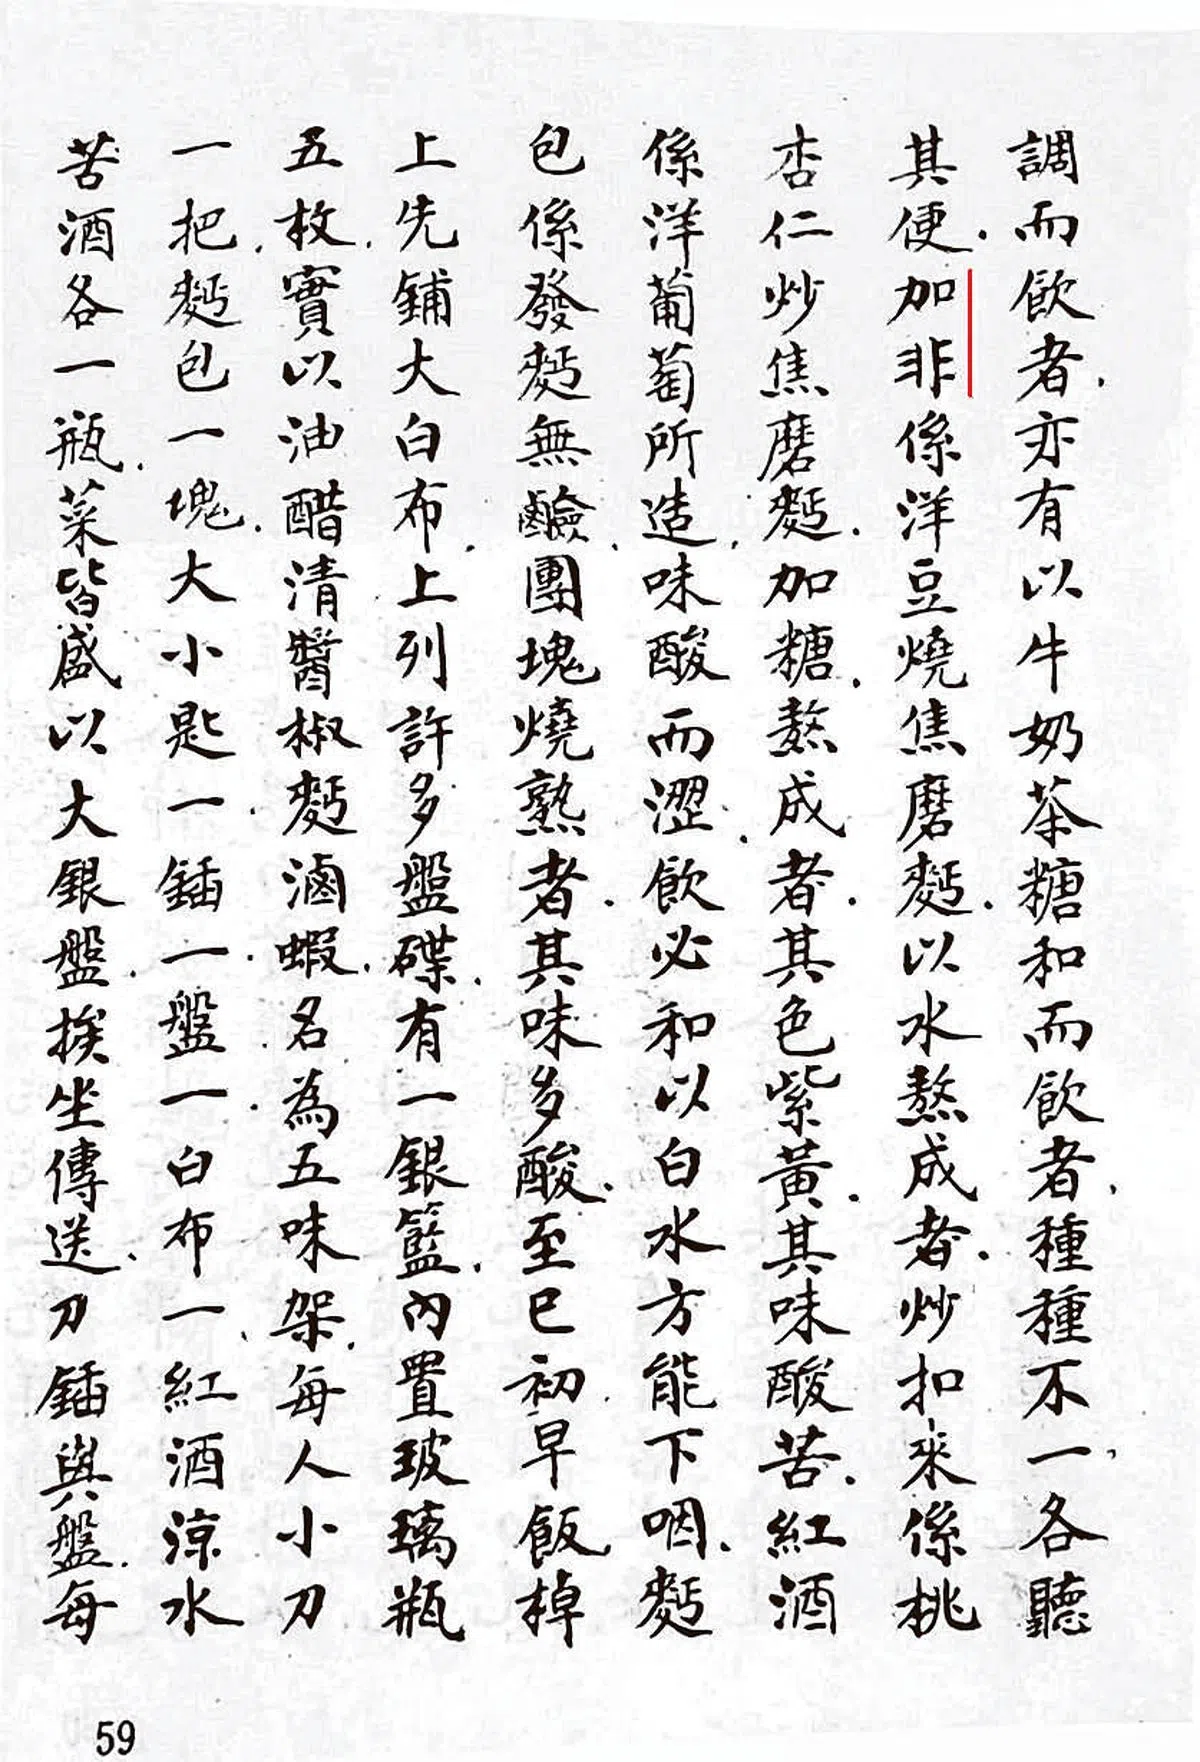 調而飲者亦有以牛奶茶糖和而飲者種種不一各聽
其便加非係洋豆燒焦磨麪以水熬成者炒扣來係桃
杏仁炒焦磨麪加糖熬成者其色紫黃其味酸苦紅酒
係洋葡萄所造味酸而澀飲必和以白水方能下咽麪
包係發麪無鹼團塊燒熟者其味多酸至巳初早飯棹
上先鋪大白布上列許多盤碟有一銀籃內置玻璃瓶
五枚實以油醋清醬椒麪滷蝦名為五味架每人小刀
一把麪包一塊大小匙一鍤一盤一白布一紅酒涼水
苦酒各一瓶菜皆盛以大銀盤挨坐傳送刀鍤與盤每
59